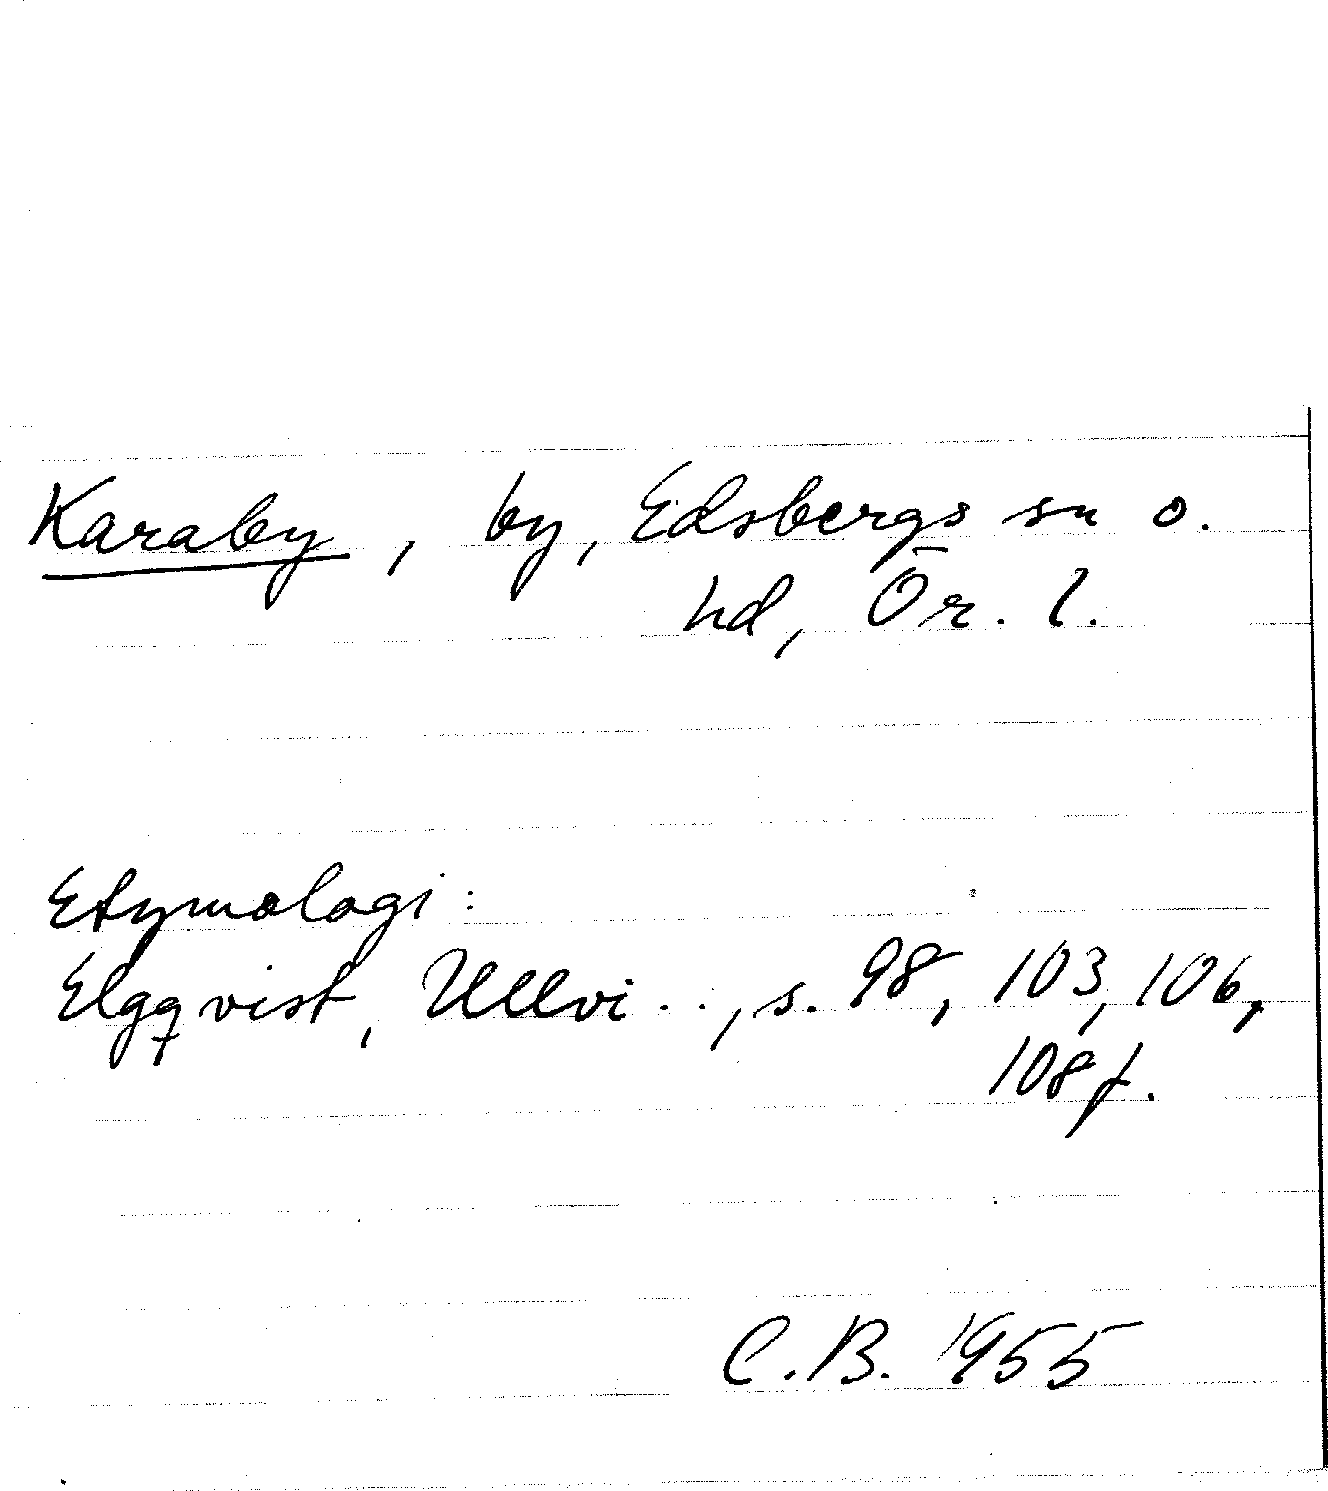 Karaby, by, Edsbergs sn o.
hd, Ör. l.
Etymologi:
Elgqvist, Ullvi . . , s. 98, 103, 106,
108 f.
C.B. 1955